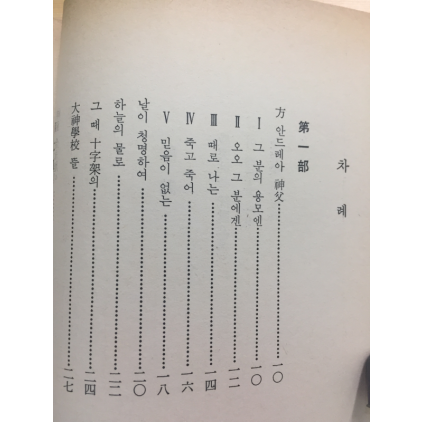 차례
第一部
方 안드레아 神父 一〇
Ⅰ 그 분의 용모엔 一〇
Ⅱ 오오 그 분에겐 一二
Ⅲ 때로 나는 一四
Ⅳ 죽고 죽어 一六
Ⅴ 믿음이 없는 一八
날이 청명하여 二〇
하늘의 물로 二二
그 때 十字架의 二四
大神學校 뜰 二七